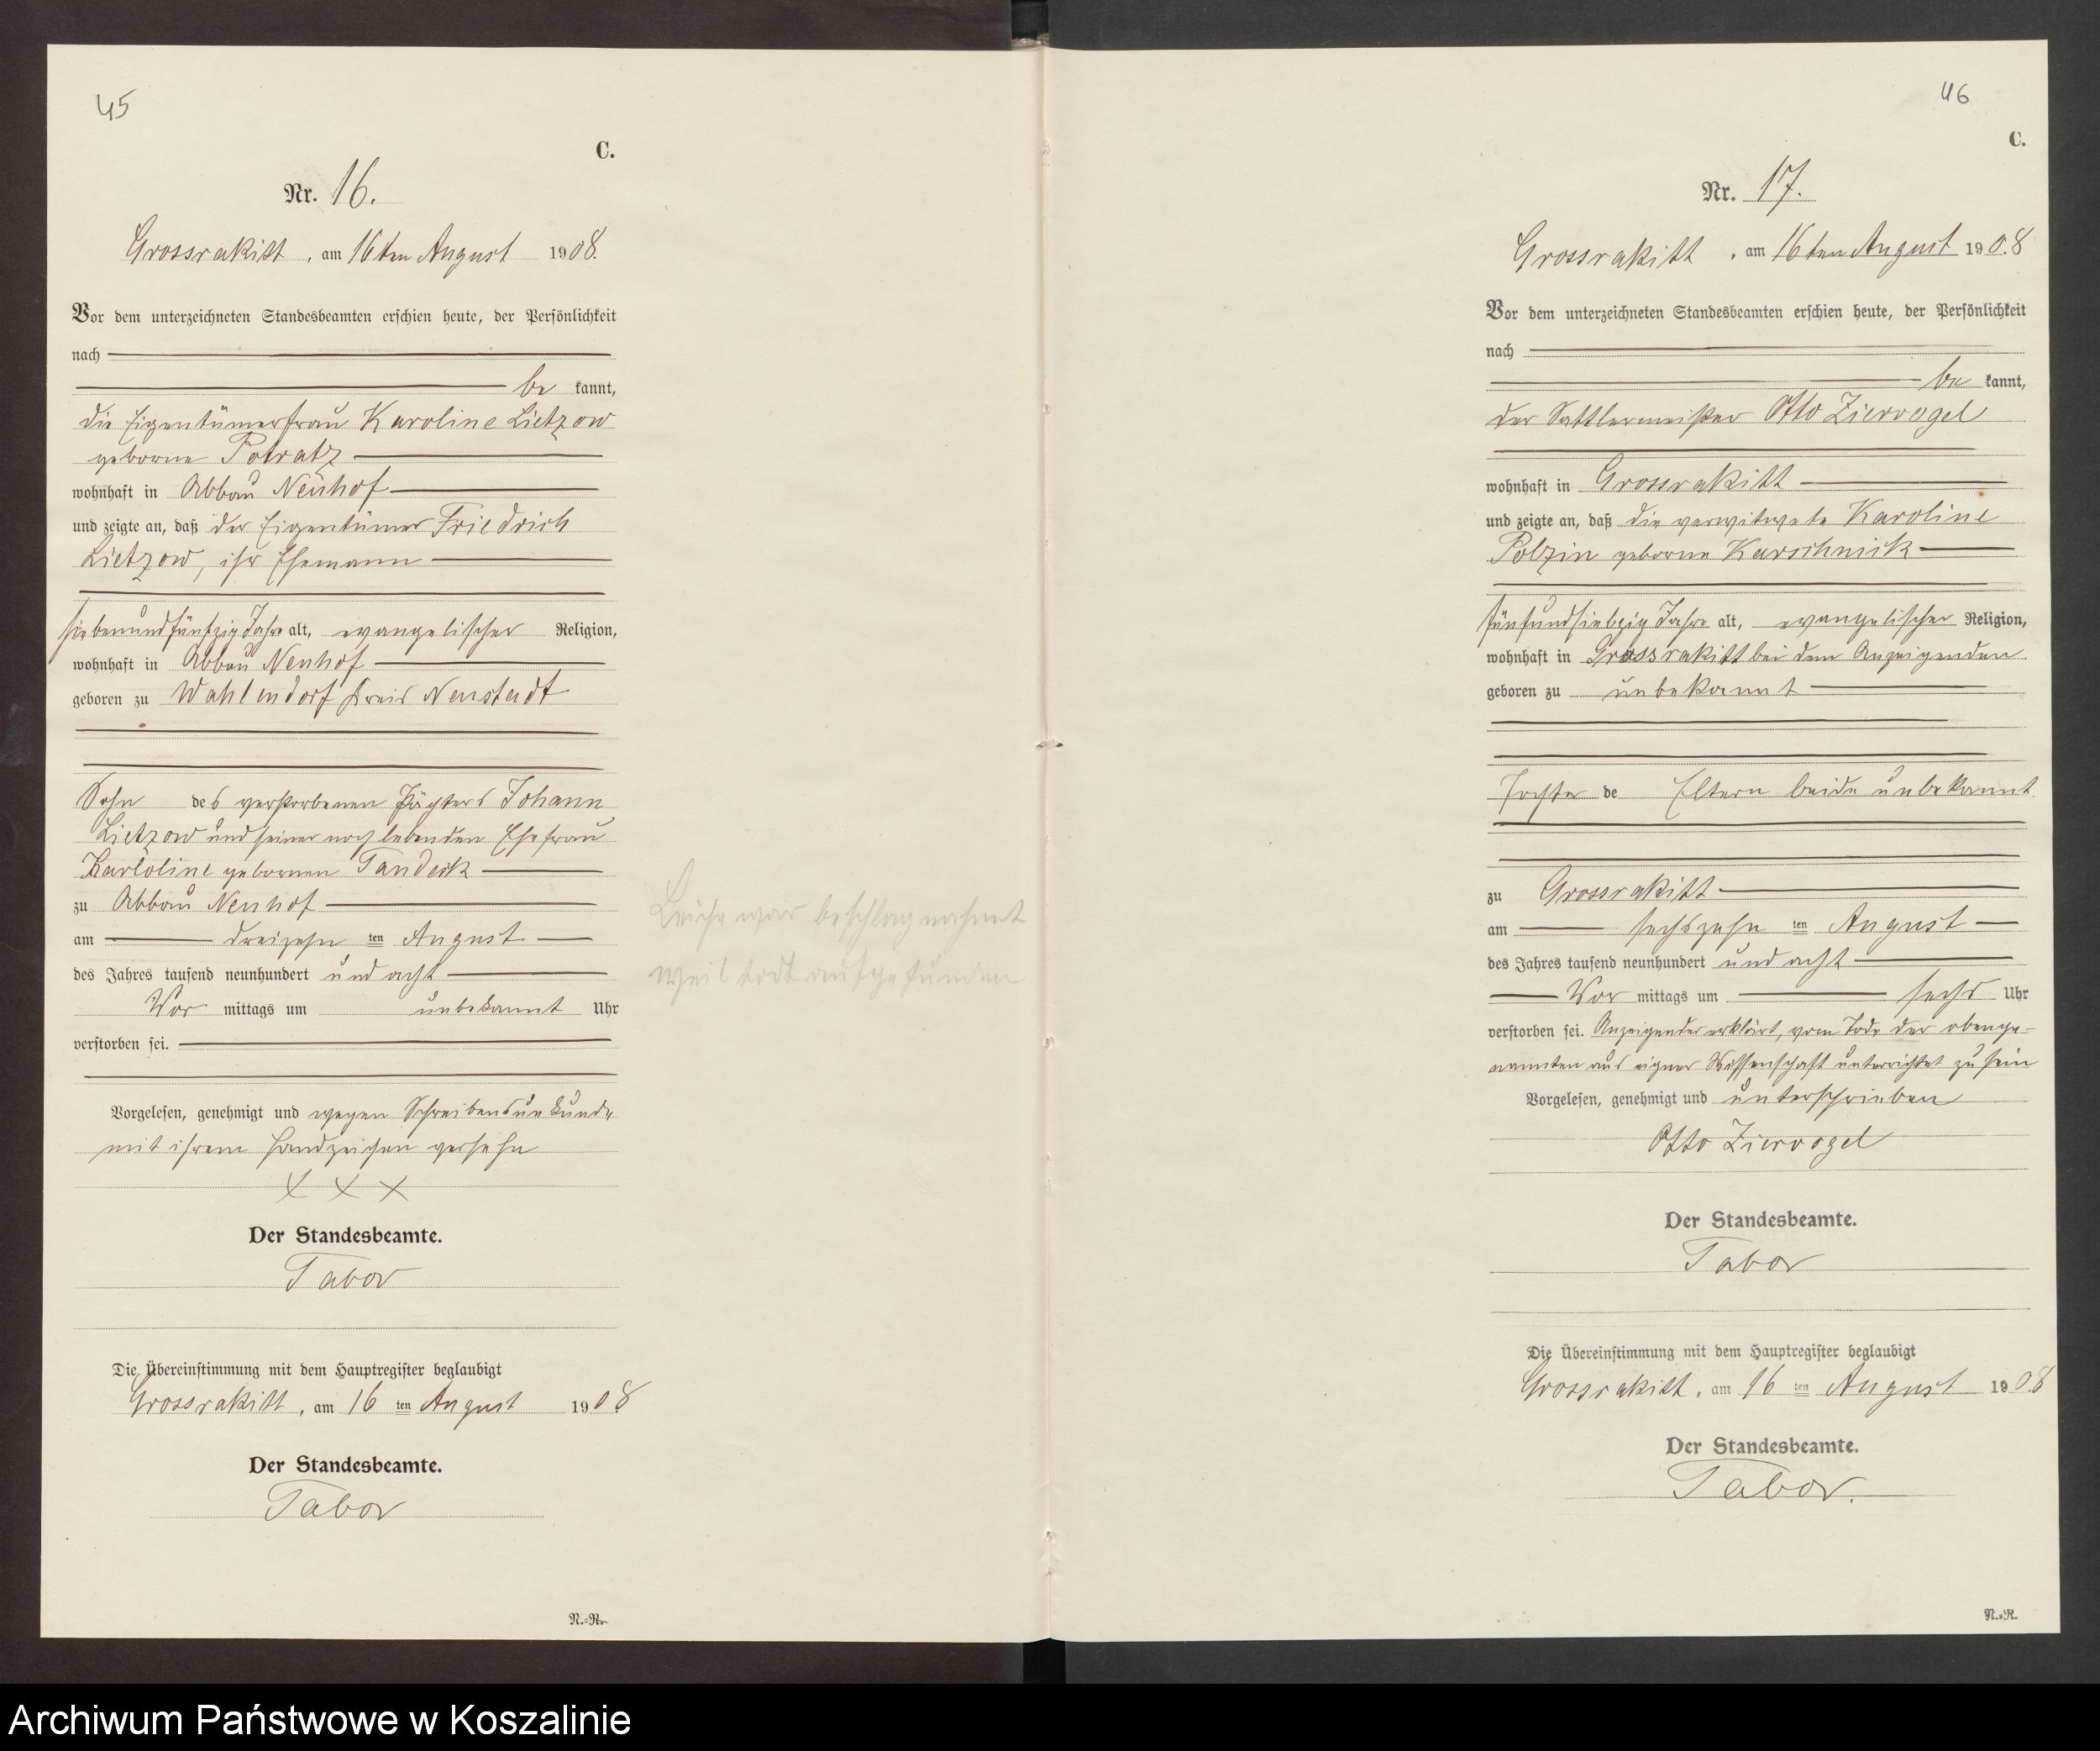 45
C.
Nr. 16.
Grossrakitt, am 16ten August 1908.
Vor dem unterzeichneten Standesbeamten erschien heute, der Persönlichkeit
nach
be kannt,
die Eigentümerfrau Karoline Lietzow
geborne Potratz
wohnhaft in Abbau Neuhof
und zeigte an, daß der Eigentümer Friedrich
Lietzow, ihr Ehemann
siebenundfünfzig Jahre alt, evangelischer Religion,
wohnhaft in Abbau Neuhof
geboren zu Wahlendorf Kreis Neustadt
Sohn des verstorbenen Pächters Johann
Lietzow und seiner noch lebenden Ehefrau
Karloline gebornen Tandeck
zu Abbau Neuhof
am dreizehn ten August
des Jahres tausend neunhundert und acht
Vor mittags um unbekannt Uhr
verstorben sei.
Vorgelesen, genehmigt und wegen Schreibensunkunde
mit ihrem Handzeichen versehn
X X X
Der Standesbeamte.
Tabor
Die Übereinstimmung mit dem Hauptregister beglaubigt
Grossrakitt, am 16 ten August 1908
Der Standesbeamte.
Tabor
N.-R.
Leiche war beschlagnahmt
weil todt aufgefunden
46
C.
Nr. 17.
Grossrakitt, am 16ten August 190.8
Vor dem unterzeichneten Standesbeamten erschien heute, der Persönlichkeit
nach
be kannt,
der Sattlermeister Otto Ziervogel
wohnhaft in Grossrakitt
und zeigte an, daß die verwitwete Karoline
Polzin geborne Karschnick
fünfundsiebzig Jahre alt, evangelischer Religion,
wohnhaft in Grossrakitt bei dem Anzeigenden
geboren zu unbekannt
Tochter de Eltern beide unbekannt
zu Grossrakitt
am sechszehn ten August
des Jahres tausend neunhundert und acht
Vor mittags um sechs Uhr
verstorben sei. Anzeigender erklärt, vom Tode der obenge-
nannten aus eigner Wissenschaft unterrichtet zu sein
Vorgelesen, genehmigt und unterschrieben
Otto Ziervogel
Der Standesbeamte.
Tabor
Die Übereinstimmung mit dem Hauptregister beglaubigt
Grossrakitt, am 16 ten August 1908
Der Standesbeamte.
Tabor.
N.-R.
Archiwum Państwowe w Koszalinie